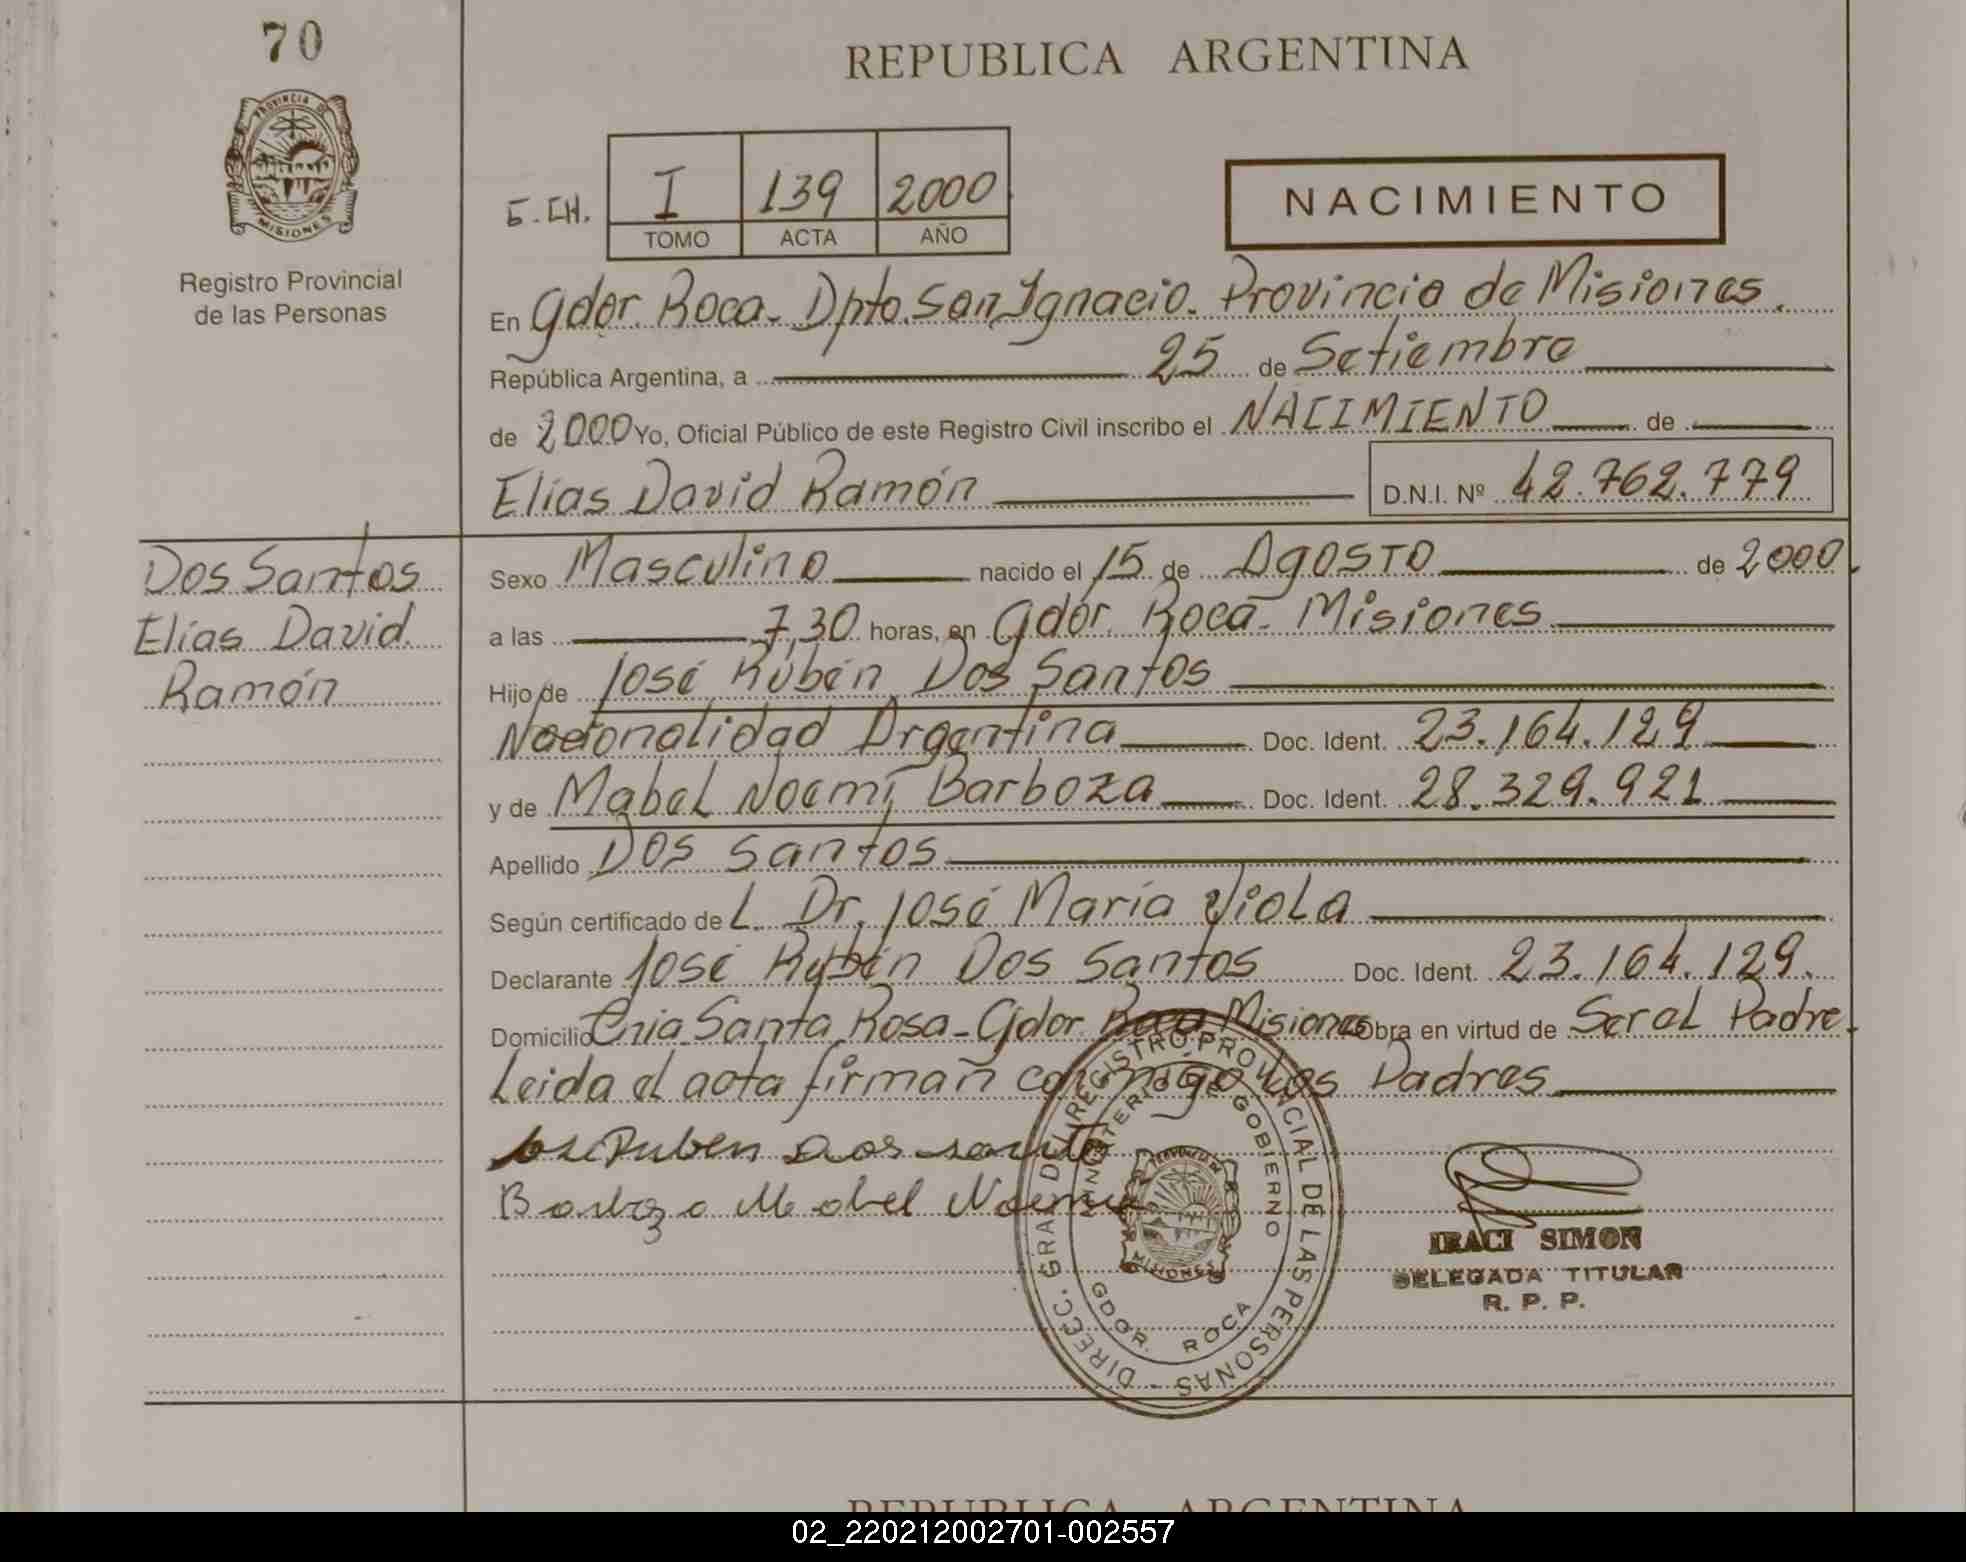 70
REPUBLICA ARGENTINA
PROVINCIA DE
MISIONES
Registro Provincial
de las Personas
I 139 2000
TOMO ACTA AÑO
NACIMIENTO
En Gdor. Roca - Dpto. San Ignacio. Provincia de Misiones.
República Argentina, a 25 de Setiembre
de 2000 Yo, Oficial Público de este Registro Civil inscribo el NACIMIENTO de
Elías David Ramón D.N.I. Nº 42.762.779
Dos Santos
Elías David
Ramón
Sexo Masculino nacido el 15 de Agosto de 2000.
a las 7,30 horas, en Gdor. Roca - Misiones
Hijo de José Rubén Dos Santos
Nacionalidad Argentina Doc. Ident. 23.164.129
y de Mabel Noemí Barboza Doc. Ident. 28.329.921
Apellido Dos Santos
Según certificado de L. Dr. José María Viola
Declarante José Rubén Dos Santos Doc. Ident. 23.164.129.
Domicilio Cnia Santa Rosa - Gdor. Roca Misiones Obra en virtud de Ser el Padre.
Leida el acta firman conmigo Los Padres
Jose Ruben Dos santos
Barboza Mabel Noemi
DIREC. GRAL. DEL REGISTRO PROVINCIAL DE LAS PERSONAS -
MINISTERIO DE GOBIERNO
GDOR. ROCA
PROVINCIA DE
MISIONES
IRACI SIMON
DELEGADA TITULAR
R. P. P.
REPUBLICA ARGENTINA
02_220212002701-002557